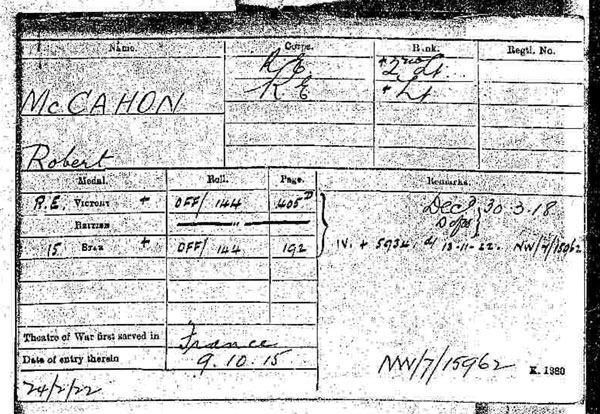 Name. Corps. Rank. Regtl. No.
R E 2nd Lt.
R E Lt
McCAHON
Robert
Medal. Roll. Page. Remarks.
R.E. VICTORY + OFF/ 144 405D Decd 30.3.18
BRITISH
15 STAR + OFF/ 144 192 IV. + 5934 d/ 13-11-22. NW/7/15962
Theatre of War first served in France
Date of entry therein 9.10.15
24/2/22 NW/7/15962 K. 1380